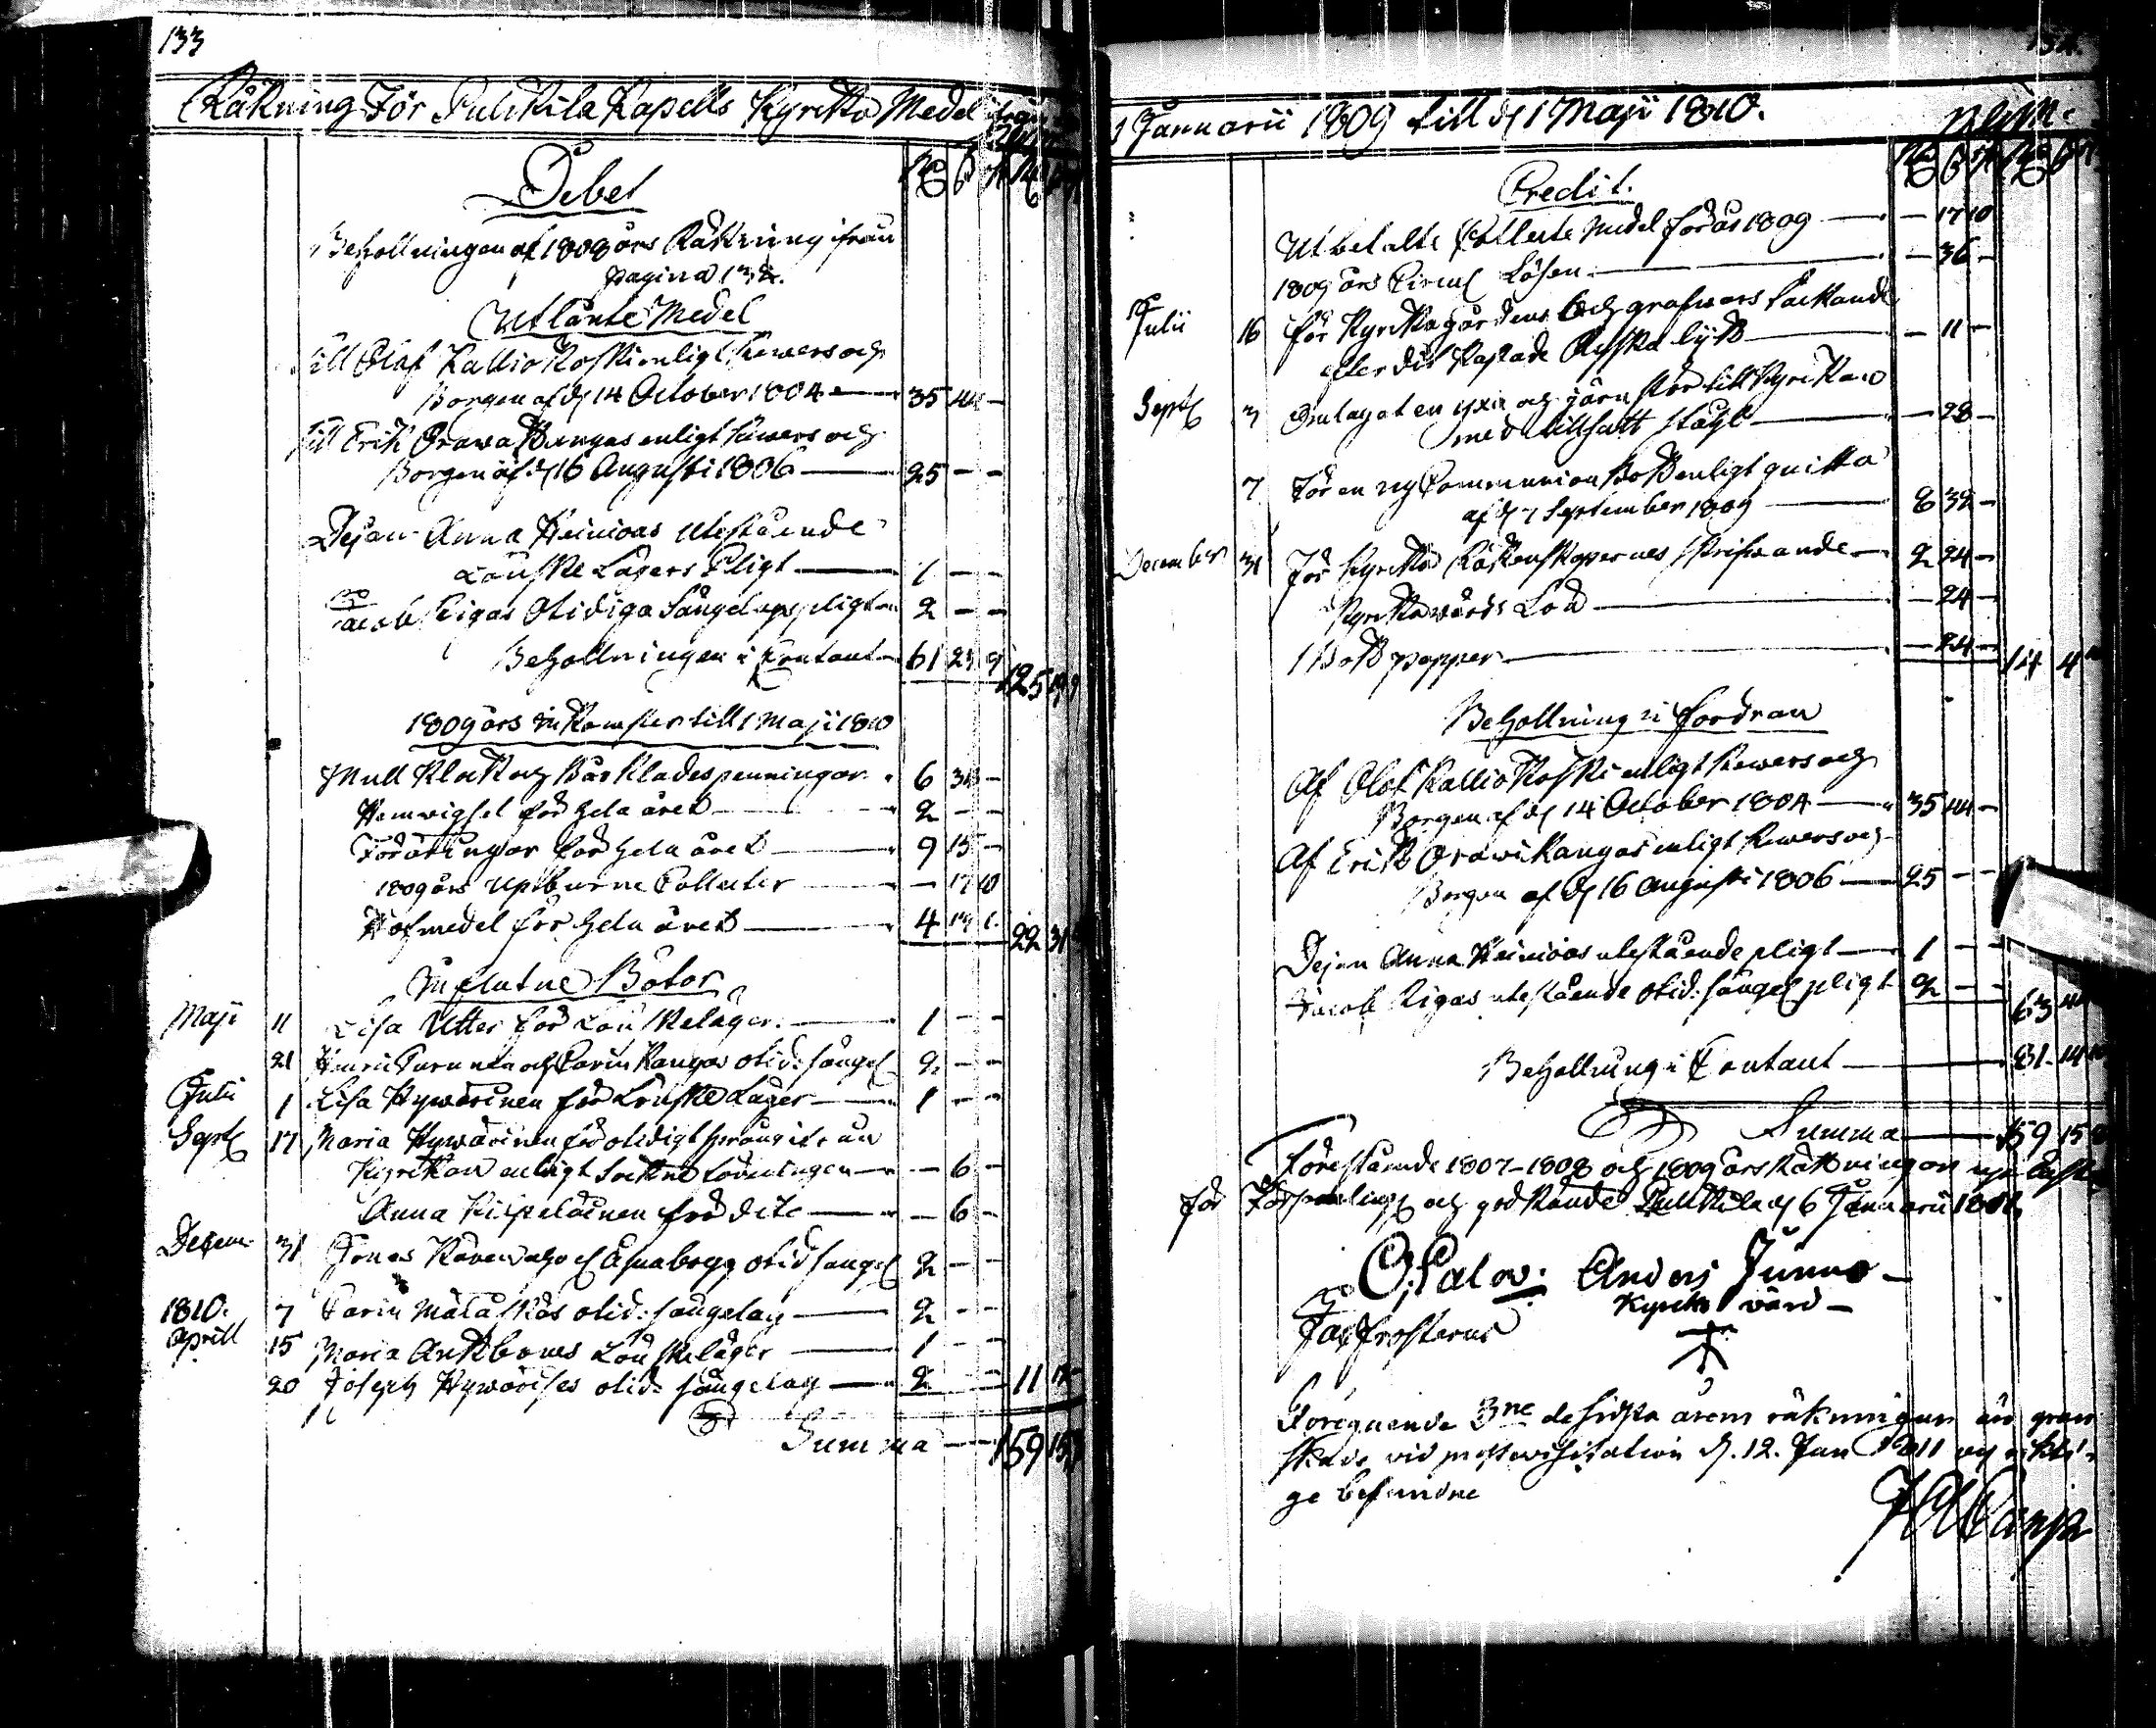 133
Räkning För Pulkkila Kapells Kyrko Medel ifrån
Debet
Behollningen af 1808 års Räkning ifrån
pagina 132.
Utlånte Medel
Till Olof Kallio Koski enligt Rewers och
Borgen af d. 14 October 1804 — 35 44 —
Till Erik Orawa Kangas enligt Rewers och
Borgen af d. 16 Augusti 1806 — 25 — —
Dejan Anna Heinioas utestående
Lönske Lägers Pligt — 1 — —
Jacob Rigas Otidiga Sängelags pligt — 2 — —
Behollningen i Contant — 61 23 9 125 19 9
1809 års inkomster till 1 Maji 1810
Mull Klock och Bårklädespenningar 6 31 —
Hemvigsel för hela året — 2 — —
Föräringar för hela året — 9 15 —
1809 års Upburne Collecter — — 17 10
Håfmedel för hela året — 4 14 6 22 31
Influtne Böter
Maji 11 Lisa Utter för Lönskelager — 1 — —
21 Henric Turunen och Carin Kangas otid: sängel 2 — —
Julii 1 Lisa Hywärinen för Lönske Lager — 1 — —
Sept 17 Maria Hywärinen för otidigt språng itr un
Kyrckan enligt Sockne Lövningen — — 6 —
Anna Kispeläinen för dito — — 6 —
Decem 31 Jonas och otid sängel 2 — —
1810. 7 Carin Mätäskäs otid: sängelag — 2 — —
Aprill 15 Maria Antbomes Lönskelager — 1 — —
20 Joseph Hywärises otid: sängelag — 2 — — 11 12
Summa — 159 15
134.
1 Januarii 1809 till d. 1 Maji 1810.
Credit.
Utbetalte Collecte Medel för år 1809 — — 17 10
1809 års Circul Lösen — — 36 —
Julii 16 För Kyrkogårdens och grafwars täckande
efter dit kastade Ryska lijk — — 11 —
Sept 3 Omlagat en yxa och järn stör till Kyrckan
med tillsatt stahl — — 28 —
7 För en ny Communion Bok enligt quitto
af d. 7 September 1809 — 8 32 —
December 31 För Kyrcko Räkenskapernes skrifwande — 2 24 —
Kyrckowärds Lön — — 24 —
1 Bok papper — — 24 — 14 4
Behollning i fordran
Af Olof Kallio Koski enligt Rewers och
Borgen af d. 14 October 1804 — 35 44 —
Af Erik Orawi Kangas enligt Rewers och
Borgen af d. 16 Augusti 1806 — 25 — —
Dejan Anna Heinioas utestående pligt — 1 — —
Jacob Rigas utestående otid: sängel pligt 2 — — 63 44
Behollning i Contant — 81 14
Summa — 159 15
Förestående 1807–1808 och 1809 års Räkningar
För och godkände Pulkkila d. 6 Januarii
Anders Junno
Kyrcko wärd
Jac Frosterus
Föregående 3ne desidsta årens räkningar äro gran
skade vid prosteвisitation d. 12. Jan 1811 och rikti-
ge befundne